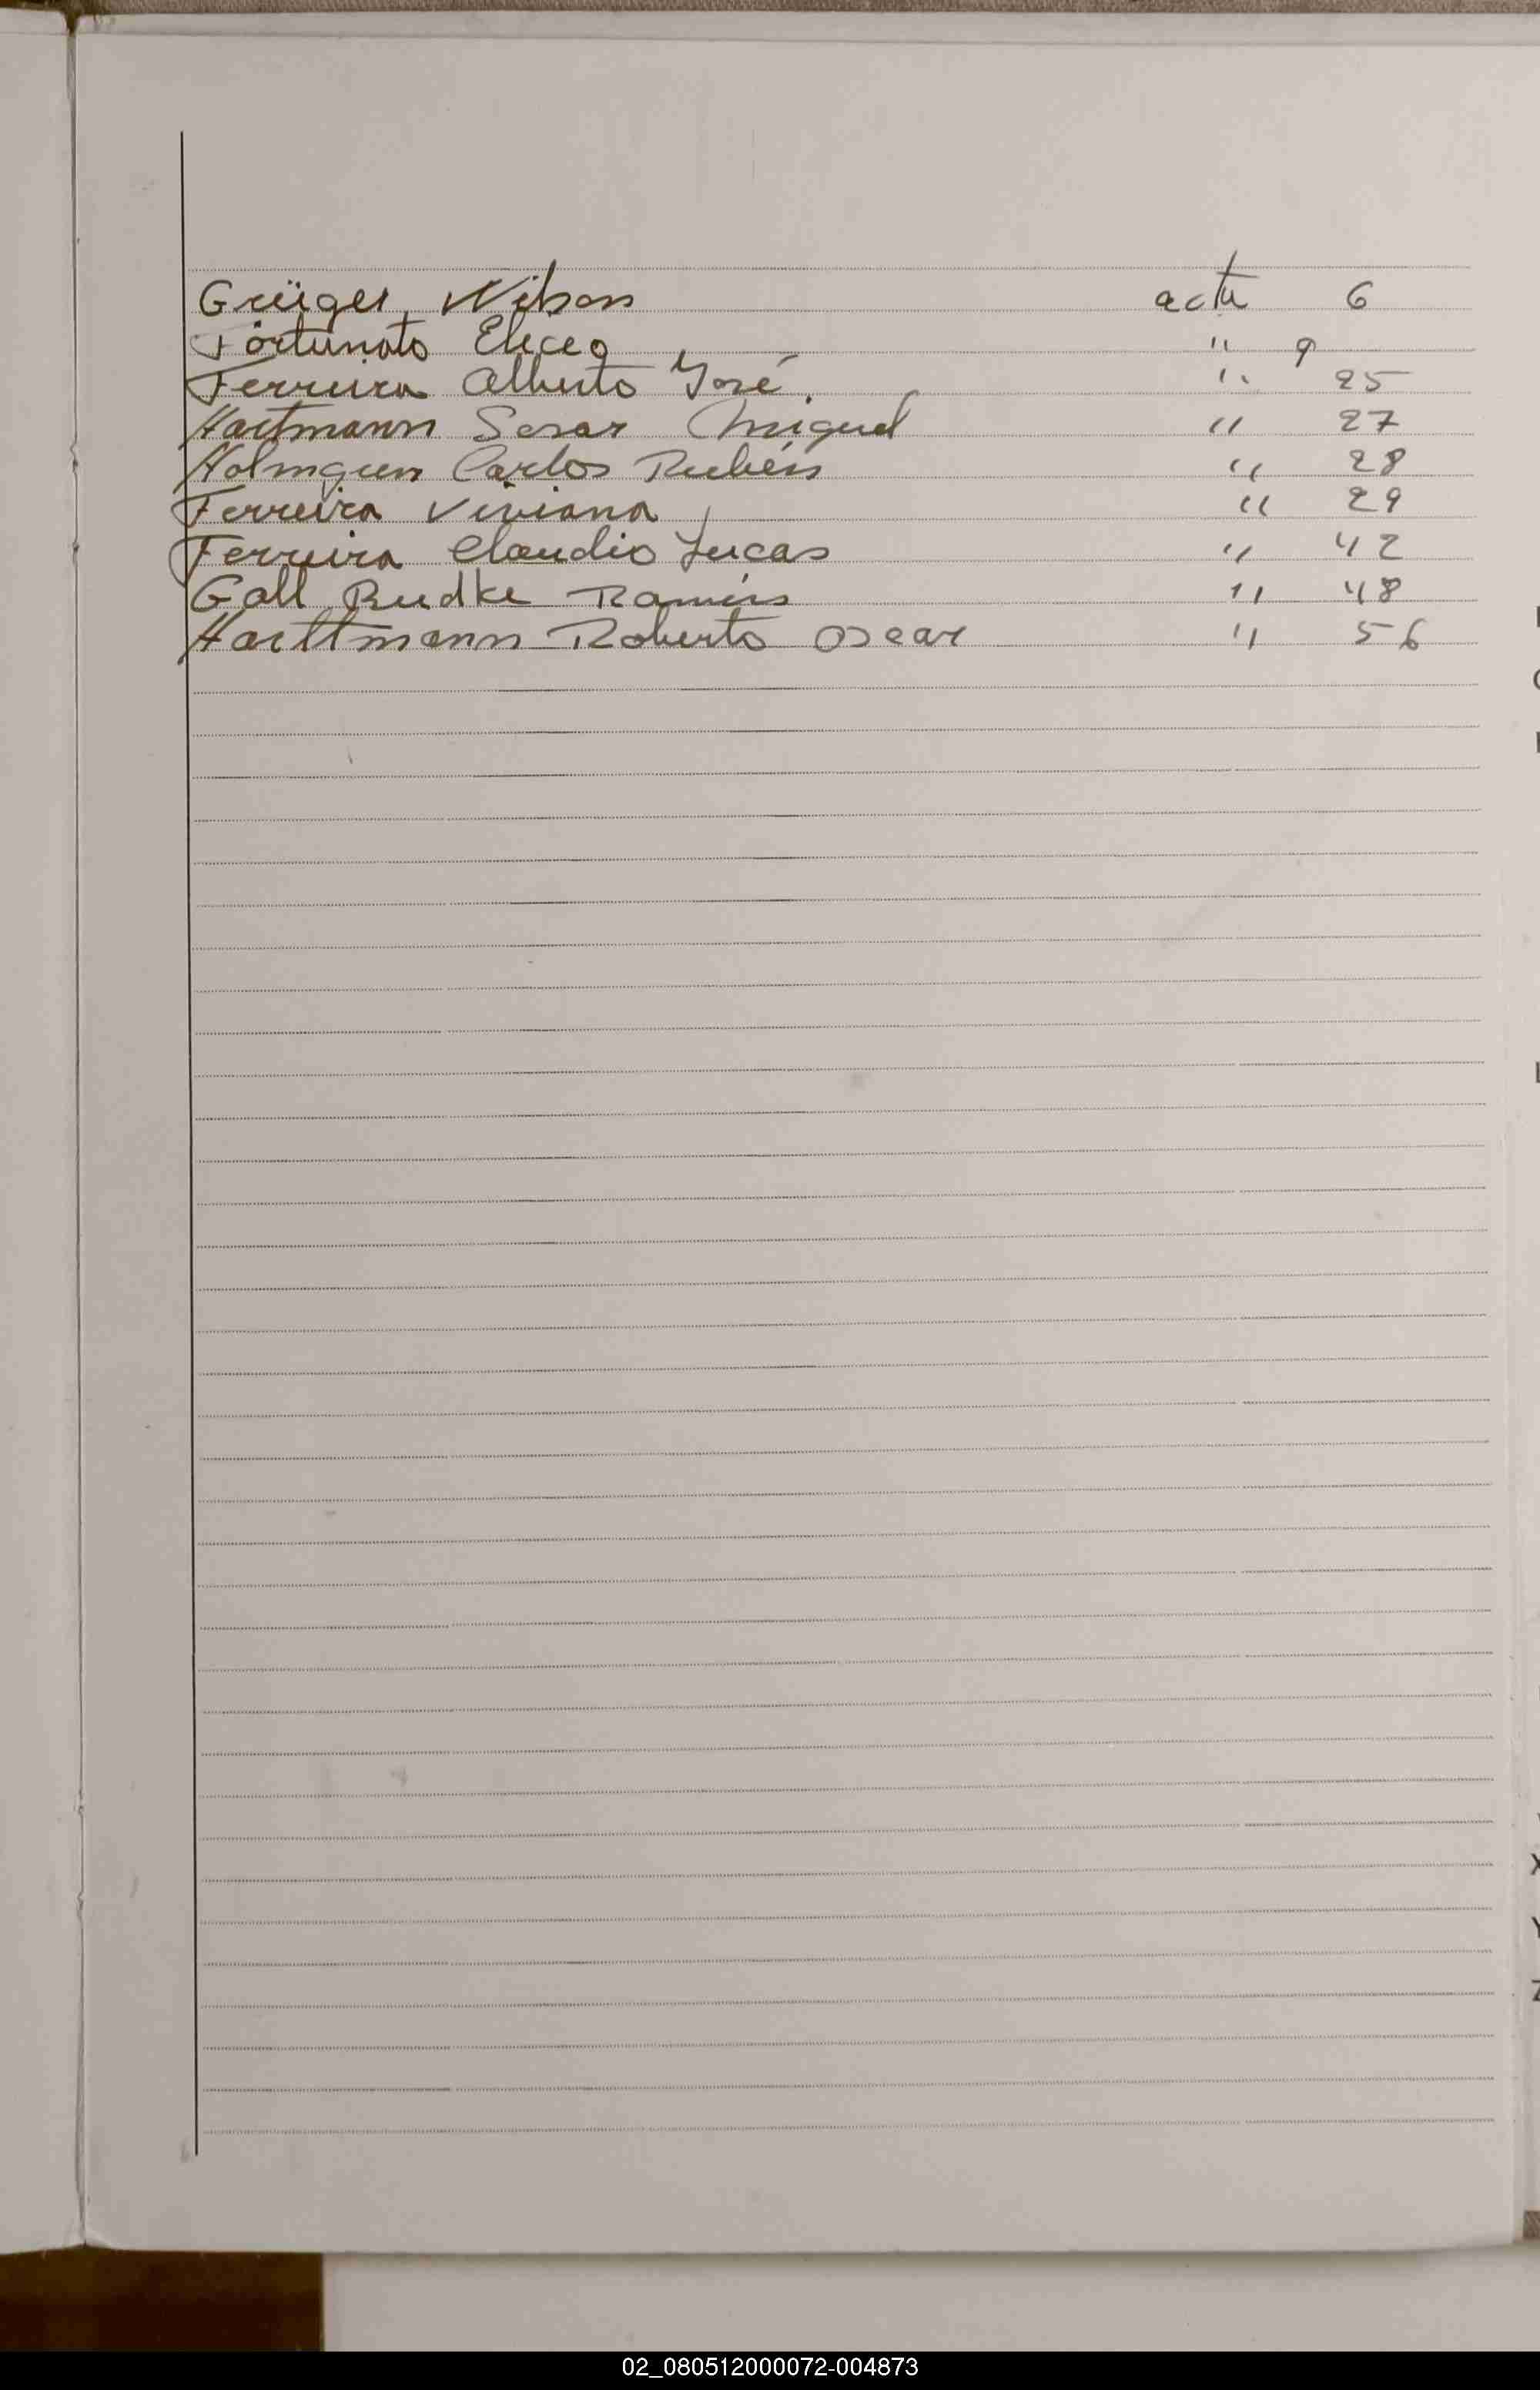 Grüger, Nilson acta 6
Fortunato Eliceo " 9
Ferreira Alberto José. " 25
Hartmann Sesar Miguel " 27
Holmgren Carlos Rubén " 28
Ferreira Viviana " 29
Ferreira Claudio Lucas " 42
Gall Rudke Ramón " 48
Harttmann Roberto Oscar " 56
X
Y
Z
02_080512000072-004873